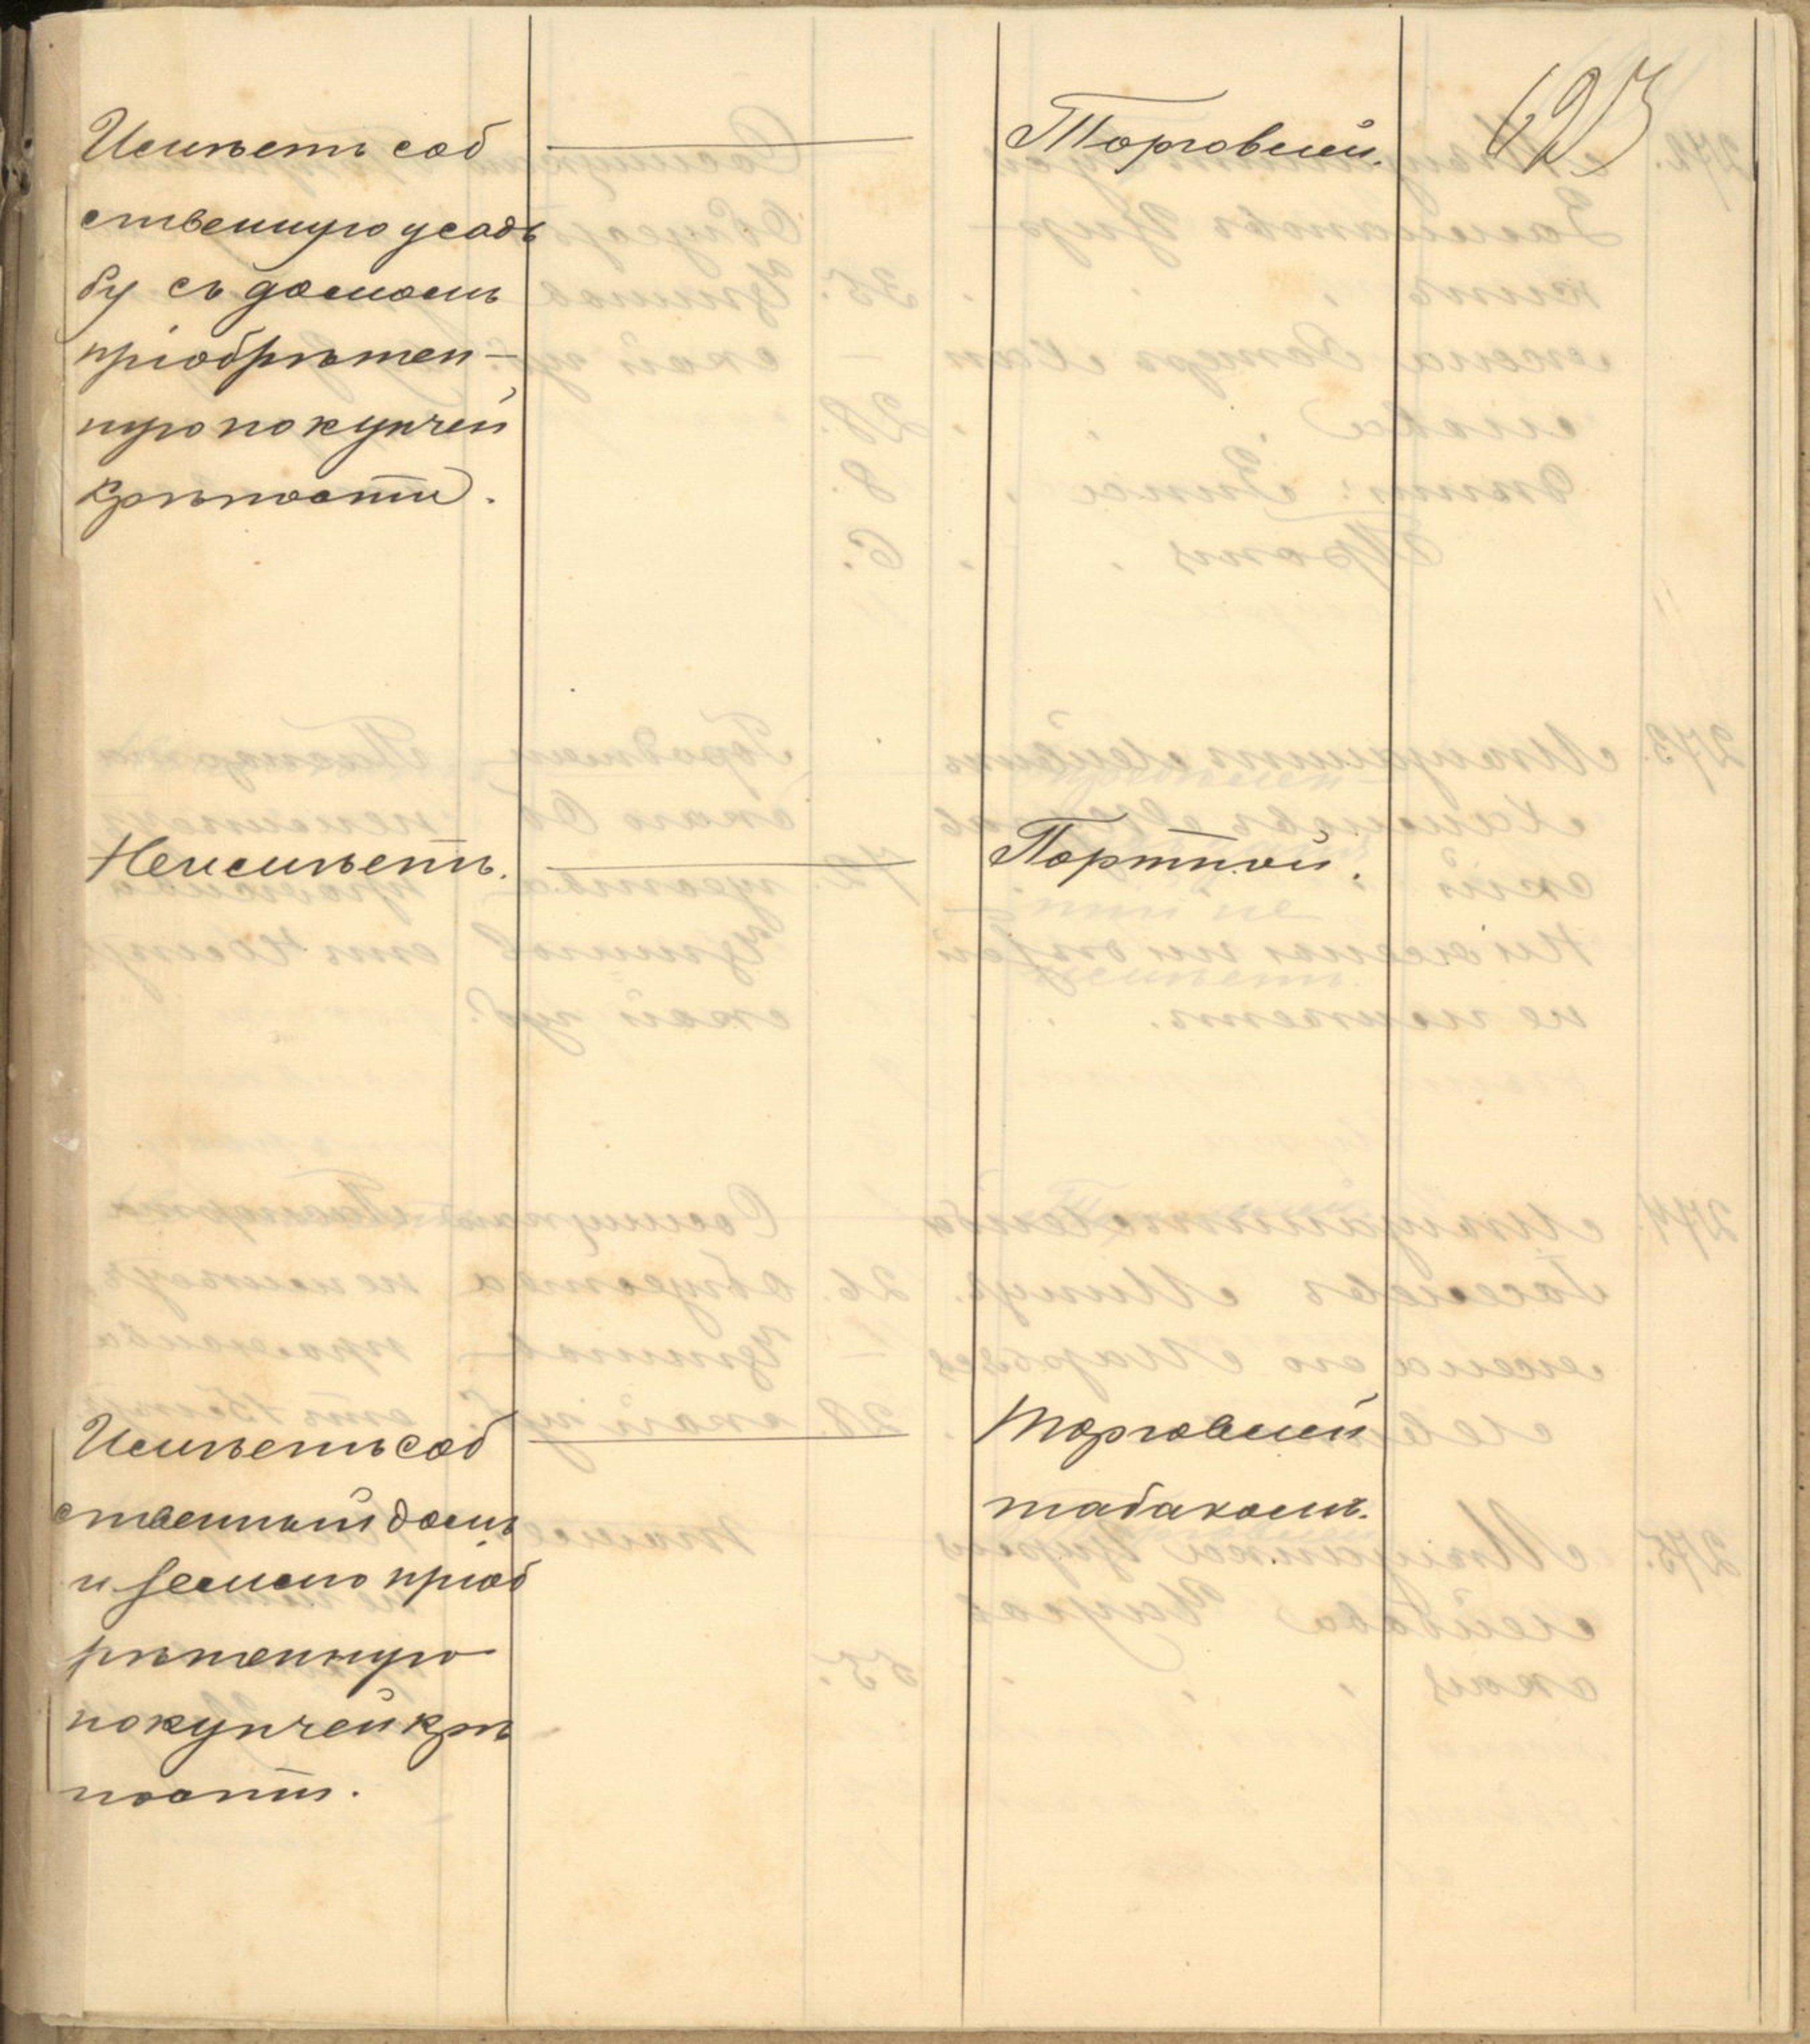 623
Имѣетъ соб
ственную усадь
бу съ домомъ
пріобрѣтен-
ную по купчей
крѣпости.
Торговлей.
Не имѣетъ.
Портной.
Имѣетъ соб
ственный домъ
и землю пріоб
рѣтенную
по купчей крѣ
пости.
Торговлей
табакомъ.